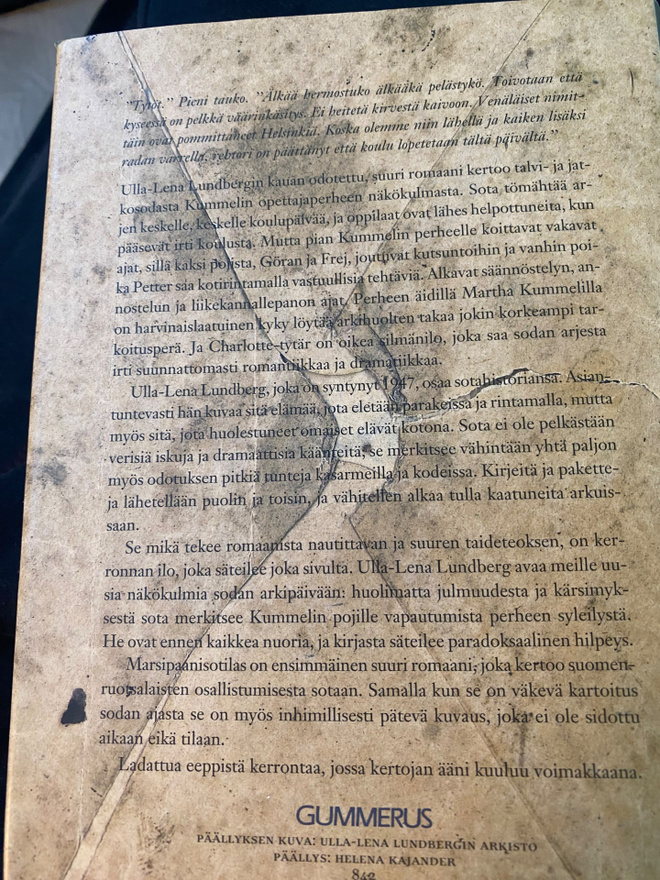 "Tytöt." Pieni tauko. "Älkää hermostuko älkääkä pelästykö. Toivotaan että
kyseessä on pelkkä väärinkäsitys. Ei heitetä kirvestä kaivoon. Venäläiset nimit-
täin ovat pommittaneet Helsinkiä. Koska olemme niin lähellä ja kaiken lisäksi
radan varrella, rehtori on päättänyt että koulu lopetetaan tältä päivältä."
Ulla-Lena Lundbergin kauan odotettu, suuri romaani kertoo talvi- ja jat-
kosodasta Kummelin opettajaperheen näkökulmasta. Sota tömähtää ar-
jen keskelle, keskelle koulupäivää, ja oppilaat ovat lähes helpottuneita, kun
pääsevät irti koulusta. Mutta pian Kummelin perheelle koittavat vakavat
ajat, sillä kaksi pojista, Göran ja Frej, joutuvat kutsuntoihin ja vanhin poi-
ka Petter saa kotirintamalla vastuullisia tehtäviä. Alkavat säännöstelyn, an-
nostelun ja liikekannallepanon ajat. Perheen äidillä Martha Kummelilla
on harvinaislaatuinen kyky löytää arkihuolten takaa jokin korkeampi tar-
koitusperä. Ja Charlotte-tytär on oikea silmänilo, joka saa sodan arjesta
irti suunnattomasti romantiikkaa ja dramatiikkaa.
Ulla-Lena Lundberg, joka on syntynyt 1947, osaa sotahistoriansa. Asian-
tuntevasti hän kuvaa sitä elämää, jota eletään parakeissa ja rintamalla, mutta
myös sitä, jota huolestuneet omaiset elävät kotona. Sota ei ole pelkästään
verisiä iskuja ja dramaattisia käänteitä; se merkitsee vähintään yhtä paljon
myös odotuksen pitkiä tunteja kasarmeilla ja kodeissa. Kirjeitä ja pakette-
ja lähetellään puolin ja toisin, ja vähitellen alkaa tulla kaatuneita arkuis-
saan.
Se mikä tekee romaanista nautittavan ja suuren taideteoksen, on ker-
ronnan ilo, joka säteilee joka sivulta. Ulla-Lena Lundberg avaa meille uu-
sia näkökulmia sodan arkipäivään: huolimatta julmuudesta ja kärsimyk-
sestä sota merkitsee Kummelin pojille vapautumista perheen syleilystä.
He ovat ennen kaikkea nuoria, ja kirjasta säteilee paradoksaalinen hilpeys.
Marsipaanisotilas on ensimmäinen suuri romaani, joka kertoo suomen-
ruotsalaisten osallistumisesta sotaan. Samalla kun se on väkevä kartoitus
sodan ajasta se on myös inhimillisesti pätevä kuvaus, joka ei ole sidottu
aikaan eikä tilaan.
Ladattua eeppistä kerrontaa, jossa kertojan ääni kuuluu voimakkaana.
GUMMERUS
PÄÄLLYKSEN KUVA: ULLA-LENA LUNDBERGIN ARKISTO
PÄÄLLYS: HELENA KAJANDER
842